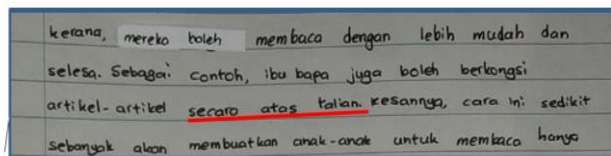 kerana, mereka boleh membaca dengan lebih mudah dan
selesa. Sebagai contoh, ibu bapa juga boleh berkongsi
artikel-artikel secara atas talian. Kesannya, cara ini sedikit
sebanyak akan membuatkan anak-anak untuk membaca hanya